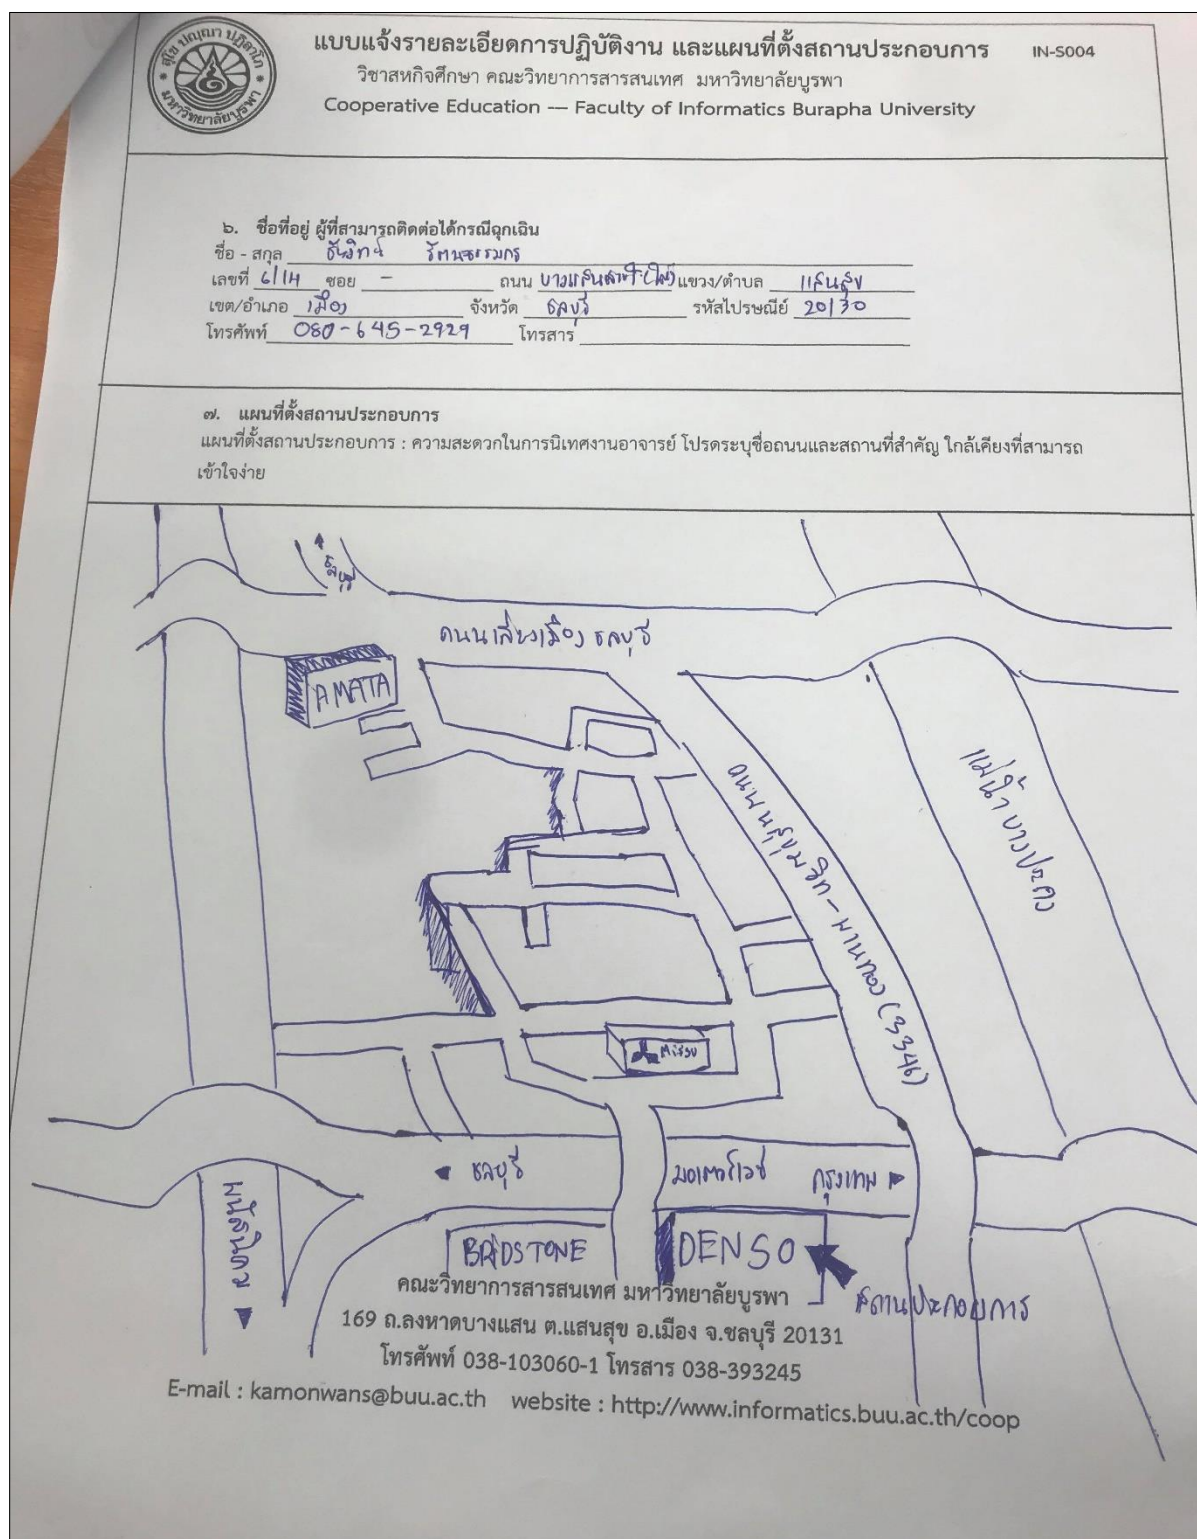 สุโข ปญฺญา ปฏิลาโภ
มหาวิทยาลัยบูรพา
แบบแจ้งรายละเอียดการปฏิบัติงาน และแผนที่ตั้งสถานประกอบการ IN-S004
วิชาสหกิจศึกษา คณะวิทยาการสารสนเทศ มหาวิทยาลัยบูรพา
Cooperative Education --- Faculty of Informatics Burapha University
๖. ชื่อที่อยู่ ผู้ที่สามารถติดต่อได้กรณีฉุกเฉิน
ชื่อ - สกุล
เลขที่ 6/14 ซอย - ถนน แขวง/ตำบล แสนสุข
เขต/อำเภอ เมือง จังหวัด ชลบุรี รหัสไปรษณีย์ 20130
โทรศัพท์ 080-645-2929 โทรสาร
๗. แผนที่ตั้งสถานประกอบการ
แผนที่ตั้งสถานประกอบการ : ความสะดวกในการนิเทศงานอาจารย์ โปรดระบุชื่อถนนและสถานที่สำคัญ ใกล้เคียงที่สามารถ
เข้าใจง่าย
ถนนเลี่ยงเมือง ชลบุรี
AMATA
แม่น้ำบางปะกง
ถนนสุขุมวิท-พานทอง (3346)
Mitsu
ชลบุรี
มอเตอร์เวย์
กรุงเทพ
พนัสนิคม
BRIDSTONE
DENSO
สถานประกอบการ
คณะวิทยาการสารสนเทศ มหาวิทยาลัยบูรพา
169 ถ.ลงหาดบางแสน ต.แสนสุข อ.เมือง จ.ชลบุรี 20131
โทรศัพท์ 038-103060-1 โทรสาร 038-393245
E-mail : kamonwans@buu.ac.th website : http://www.informatics.buu.ac.th/coop